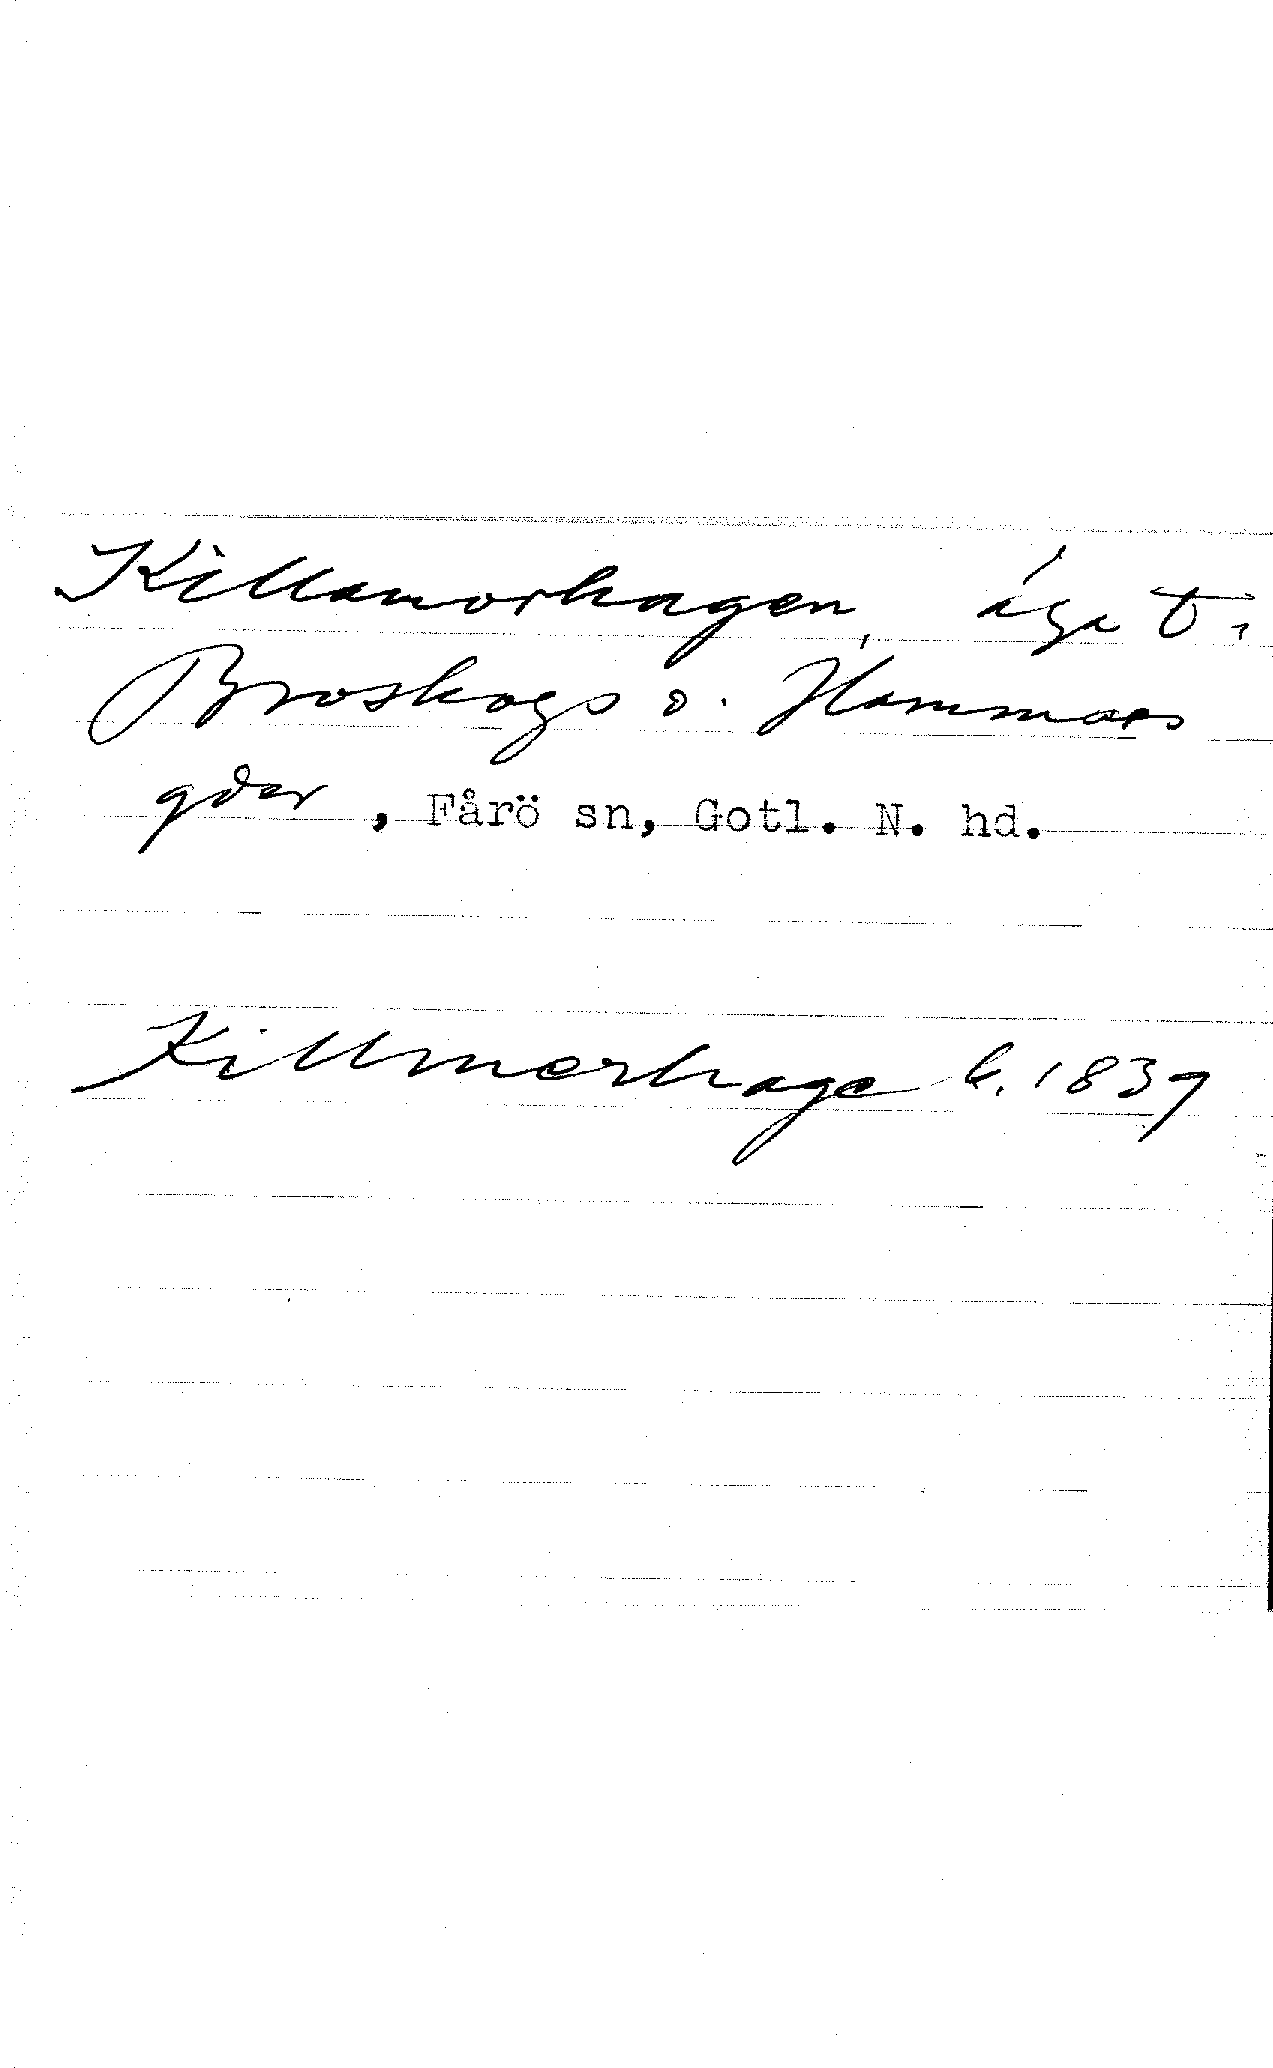 Killamorhagen, äga t.
Broskogs o. Hammars
gdar, Fårö sn, Gotl. N. hd.
Killmerhage l. 1839